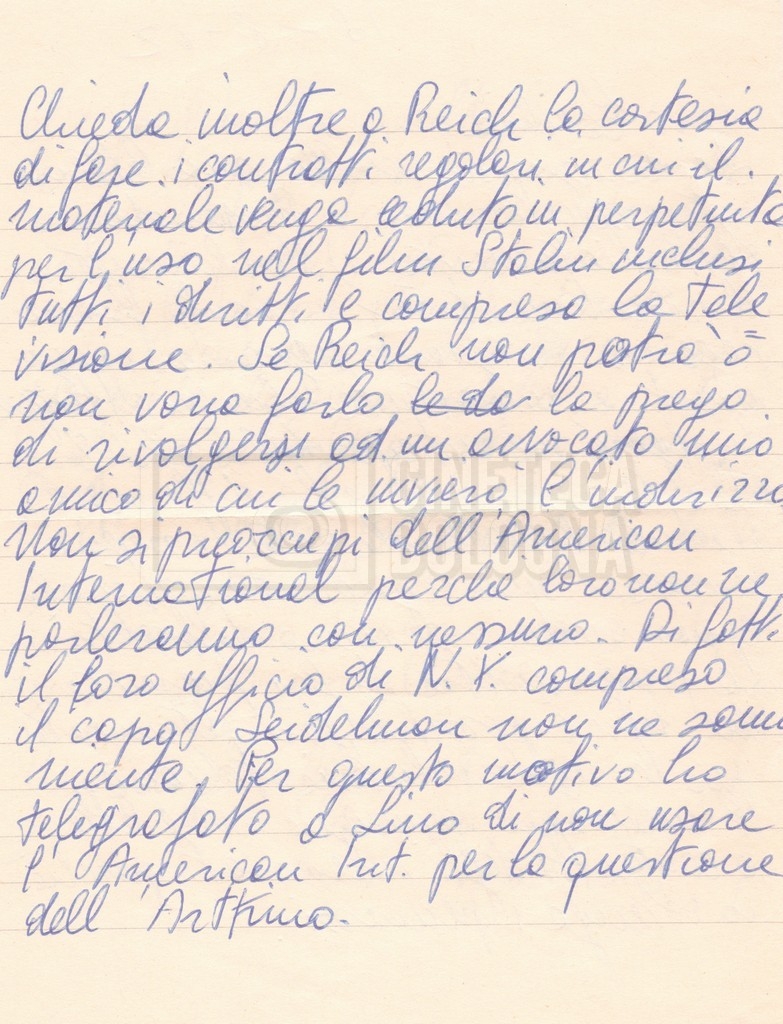 Chieda inoltre a Reich la cortesia
di fare i contratti regolari in cui il
materiale venga ceduto in perpetuità
per l'uso nel film Stalin inclusi
tutti i diritti e compresa la tele
visione. Se Reich non potrà o
non vorrà farlo la prego
di rivolgersi ad un avvocato mio
amico di cui le invierò l'indirizzo
Non si preoccupi dell'American
International perché loro non ne
parleranno con nessuno. Di fatti
il loro ufficio di N.Y. compreso
il capo Seidelman non ne sanno
niente. Per questo motivo ho
telegrafato a Lino di non usare
l'American Int. per la questione
dell'Artkino.
CINETECA
BOLOGNA